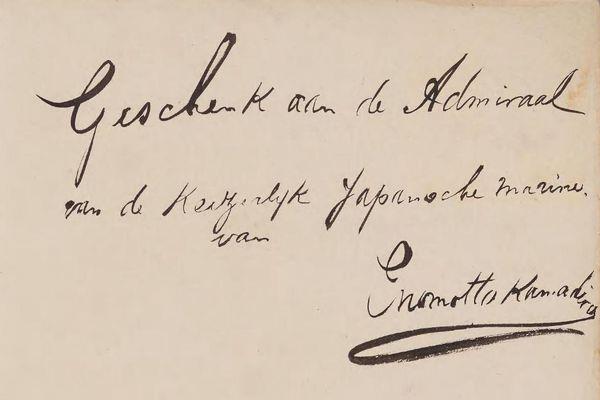 Geschenk aan de Admiraal
van de Keizerlyk Japansche marine.
van
Enomotto Kamadiro